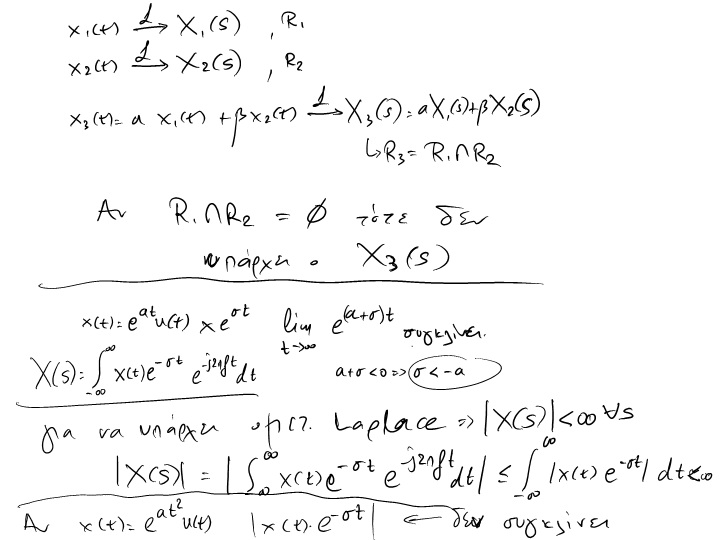 x₁(t) —ℒ→ X₁(s) , R₁
x₂(t) —ℒ→ X₂(s) , R₂
x₃(t) = a x₁(t) + βx₂(t) —ℒ→ X₃(s) = aX₁(s)+βX₂(s)
↳ R₃ = R₁∩R₂
Αν R₁∩R₂ = ∅ τότε δεν
υπάρχει ο X₃(s)
x(t) = e^{at}u(t) x e^{σt} lim_{t→∞} e^{(a+σ)t} συγκλίνει.
X(s) = ∫_{-∞}^{∞} x(t)e^{-σt} e^{-j2πft}dt a+σ<0 => σ<-a
για να υπάρχει ο μετ. Laplace => |X(s)|<∞ ∀s
|X(s)| = |∫_{-∞}^{∞} x(t)e^{-σt} e^{-j2πft}dt| ≤ ∫_{-∞}^{∞} |x(t) e^{-σt}| dt<∞
Αν x(t) = e^{at²}u(t) |x(t)·e^{-σt}| ← δεν συγκλίνει